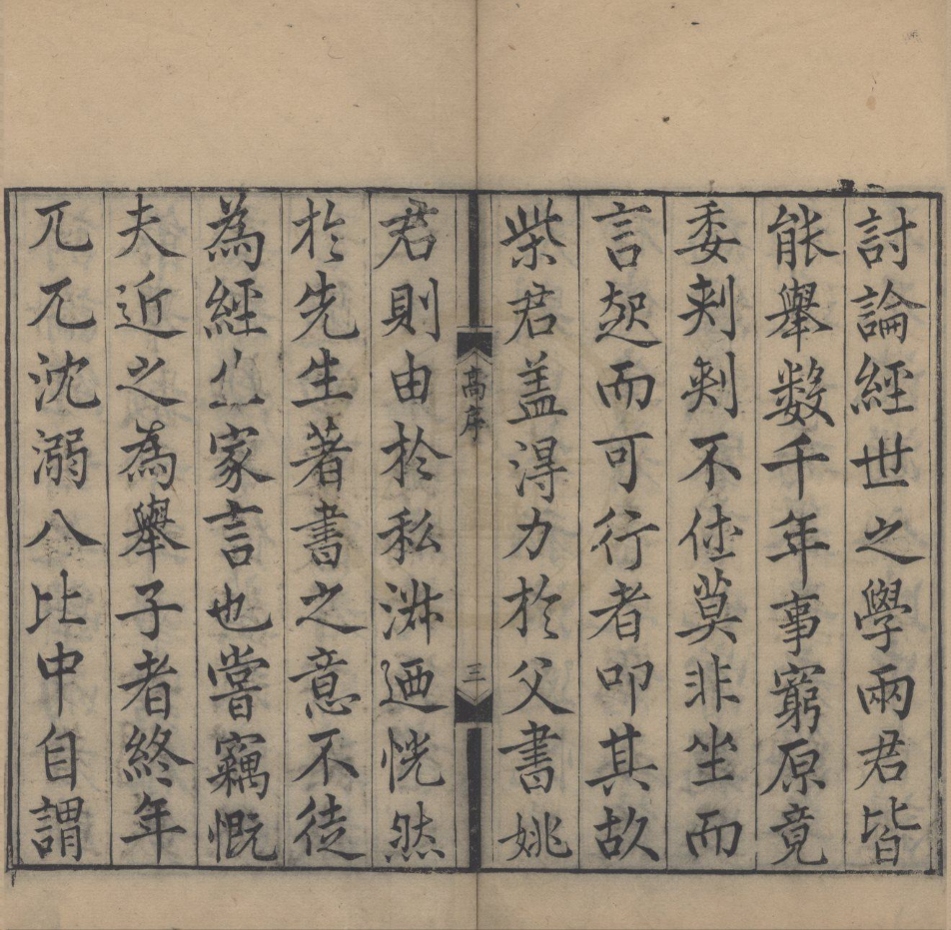 討論經世之學兩君皆
能舉数千年事窮原竟
委剌剌不休莫非坐而
言起而可行者叩其故
柴君盖淂力於父書姚
高序
三
君則由於私淑廼恍然
於先生著書之意不徒
為經生家言也嘗竊慨
夫近之為舉子者終年
兀兀沈溺八比中自謂